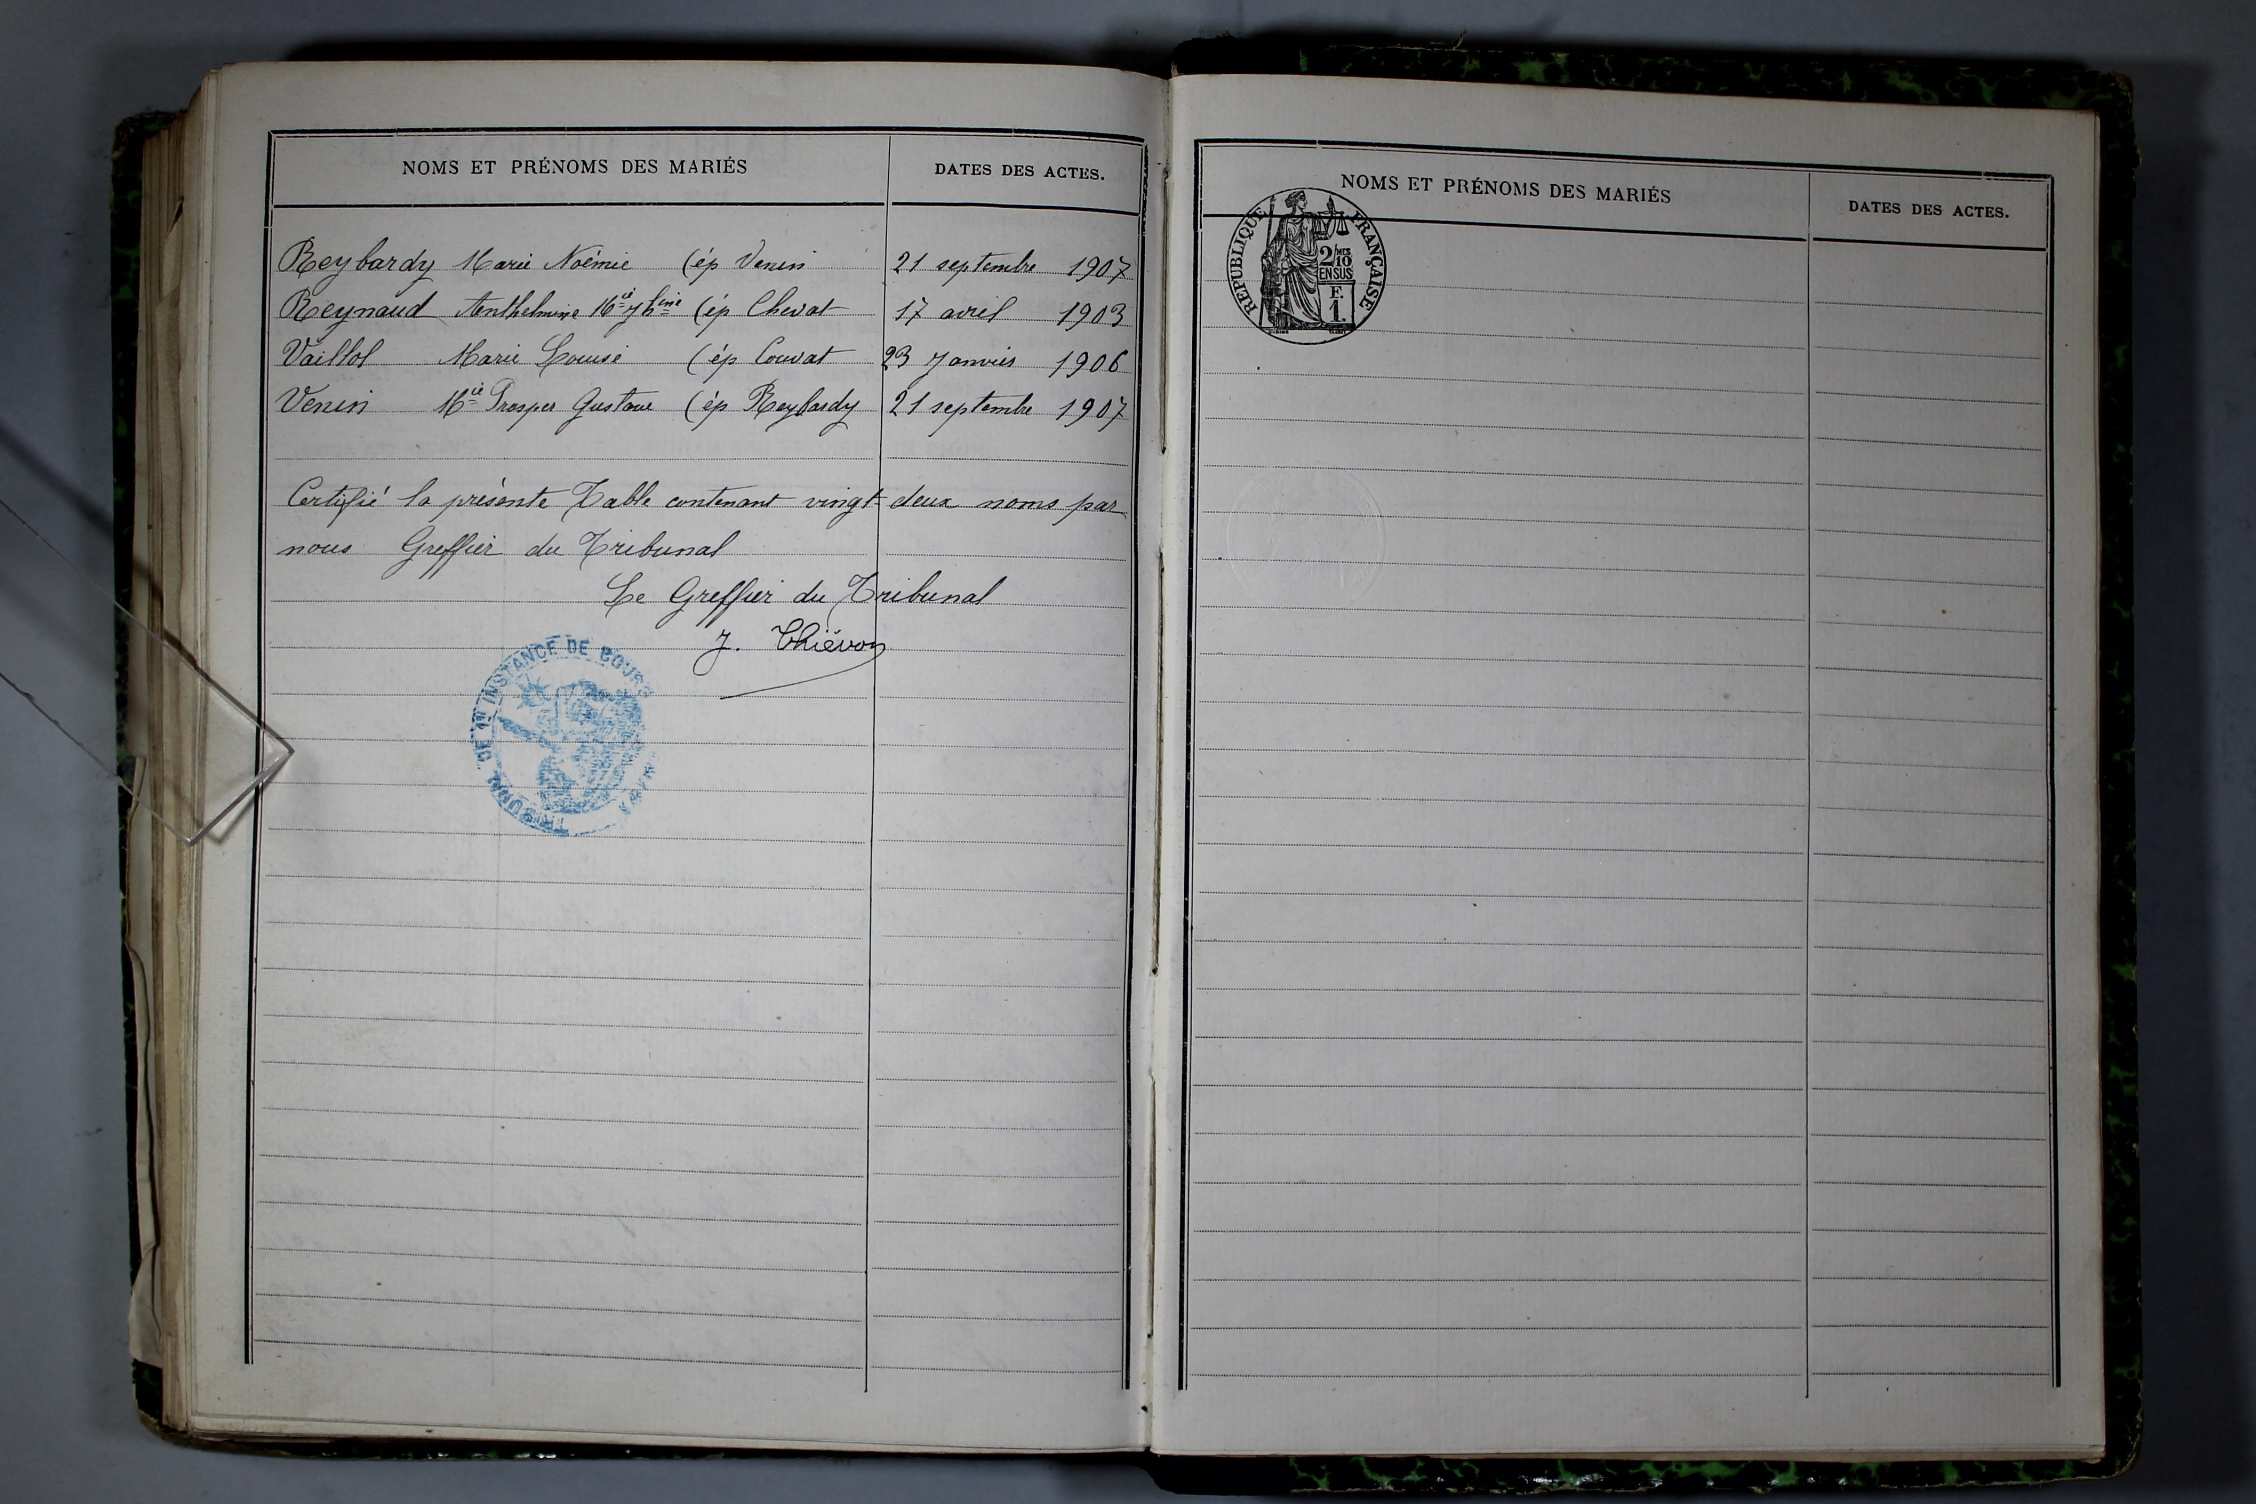 NOMS ET PRÉNOMS DES MARIÉS DATES DES ACTES.
Reybardy Marie Noémie (ép Venin 21 septembre 1907
Reynaud Anthelmine Mie Jhine (ép Chevat 17 avril 1903
Vaillol Marie Louise (ép Couvat 23 Janvier 1906
Venin Mie Prosper Gustave (ép Reybardy 21 septembre 1907
Certifié la présente Table contenant vingt-deux noms par
nous Greffier du Tribunal
Le Greffier du Tribunal
J. Thiévon
TRIBUNAL DE 1re INSTANCE DE BOURG
NOMS ET PRÉNOMS DES MARIÉS DATES DES ACTES.
REPUBLIQUE FRANÇAISE
2/10 MES
EN SUS
F.
1.